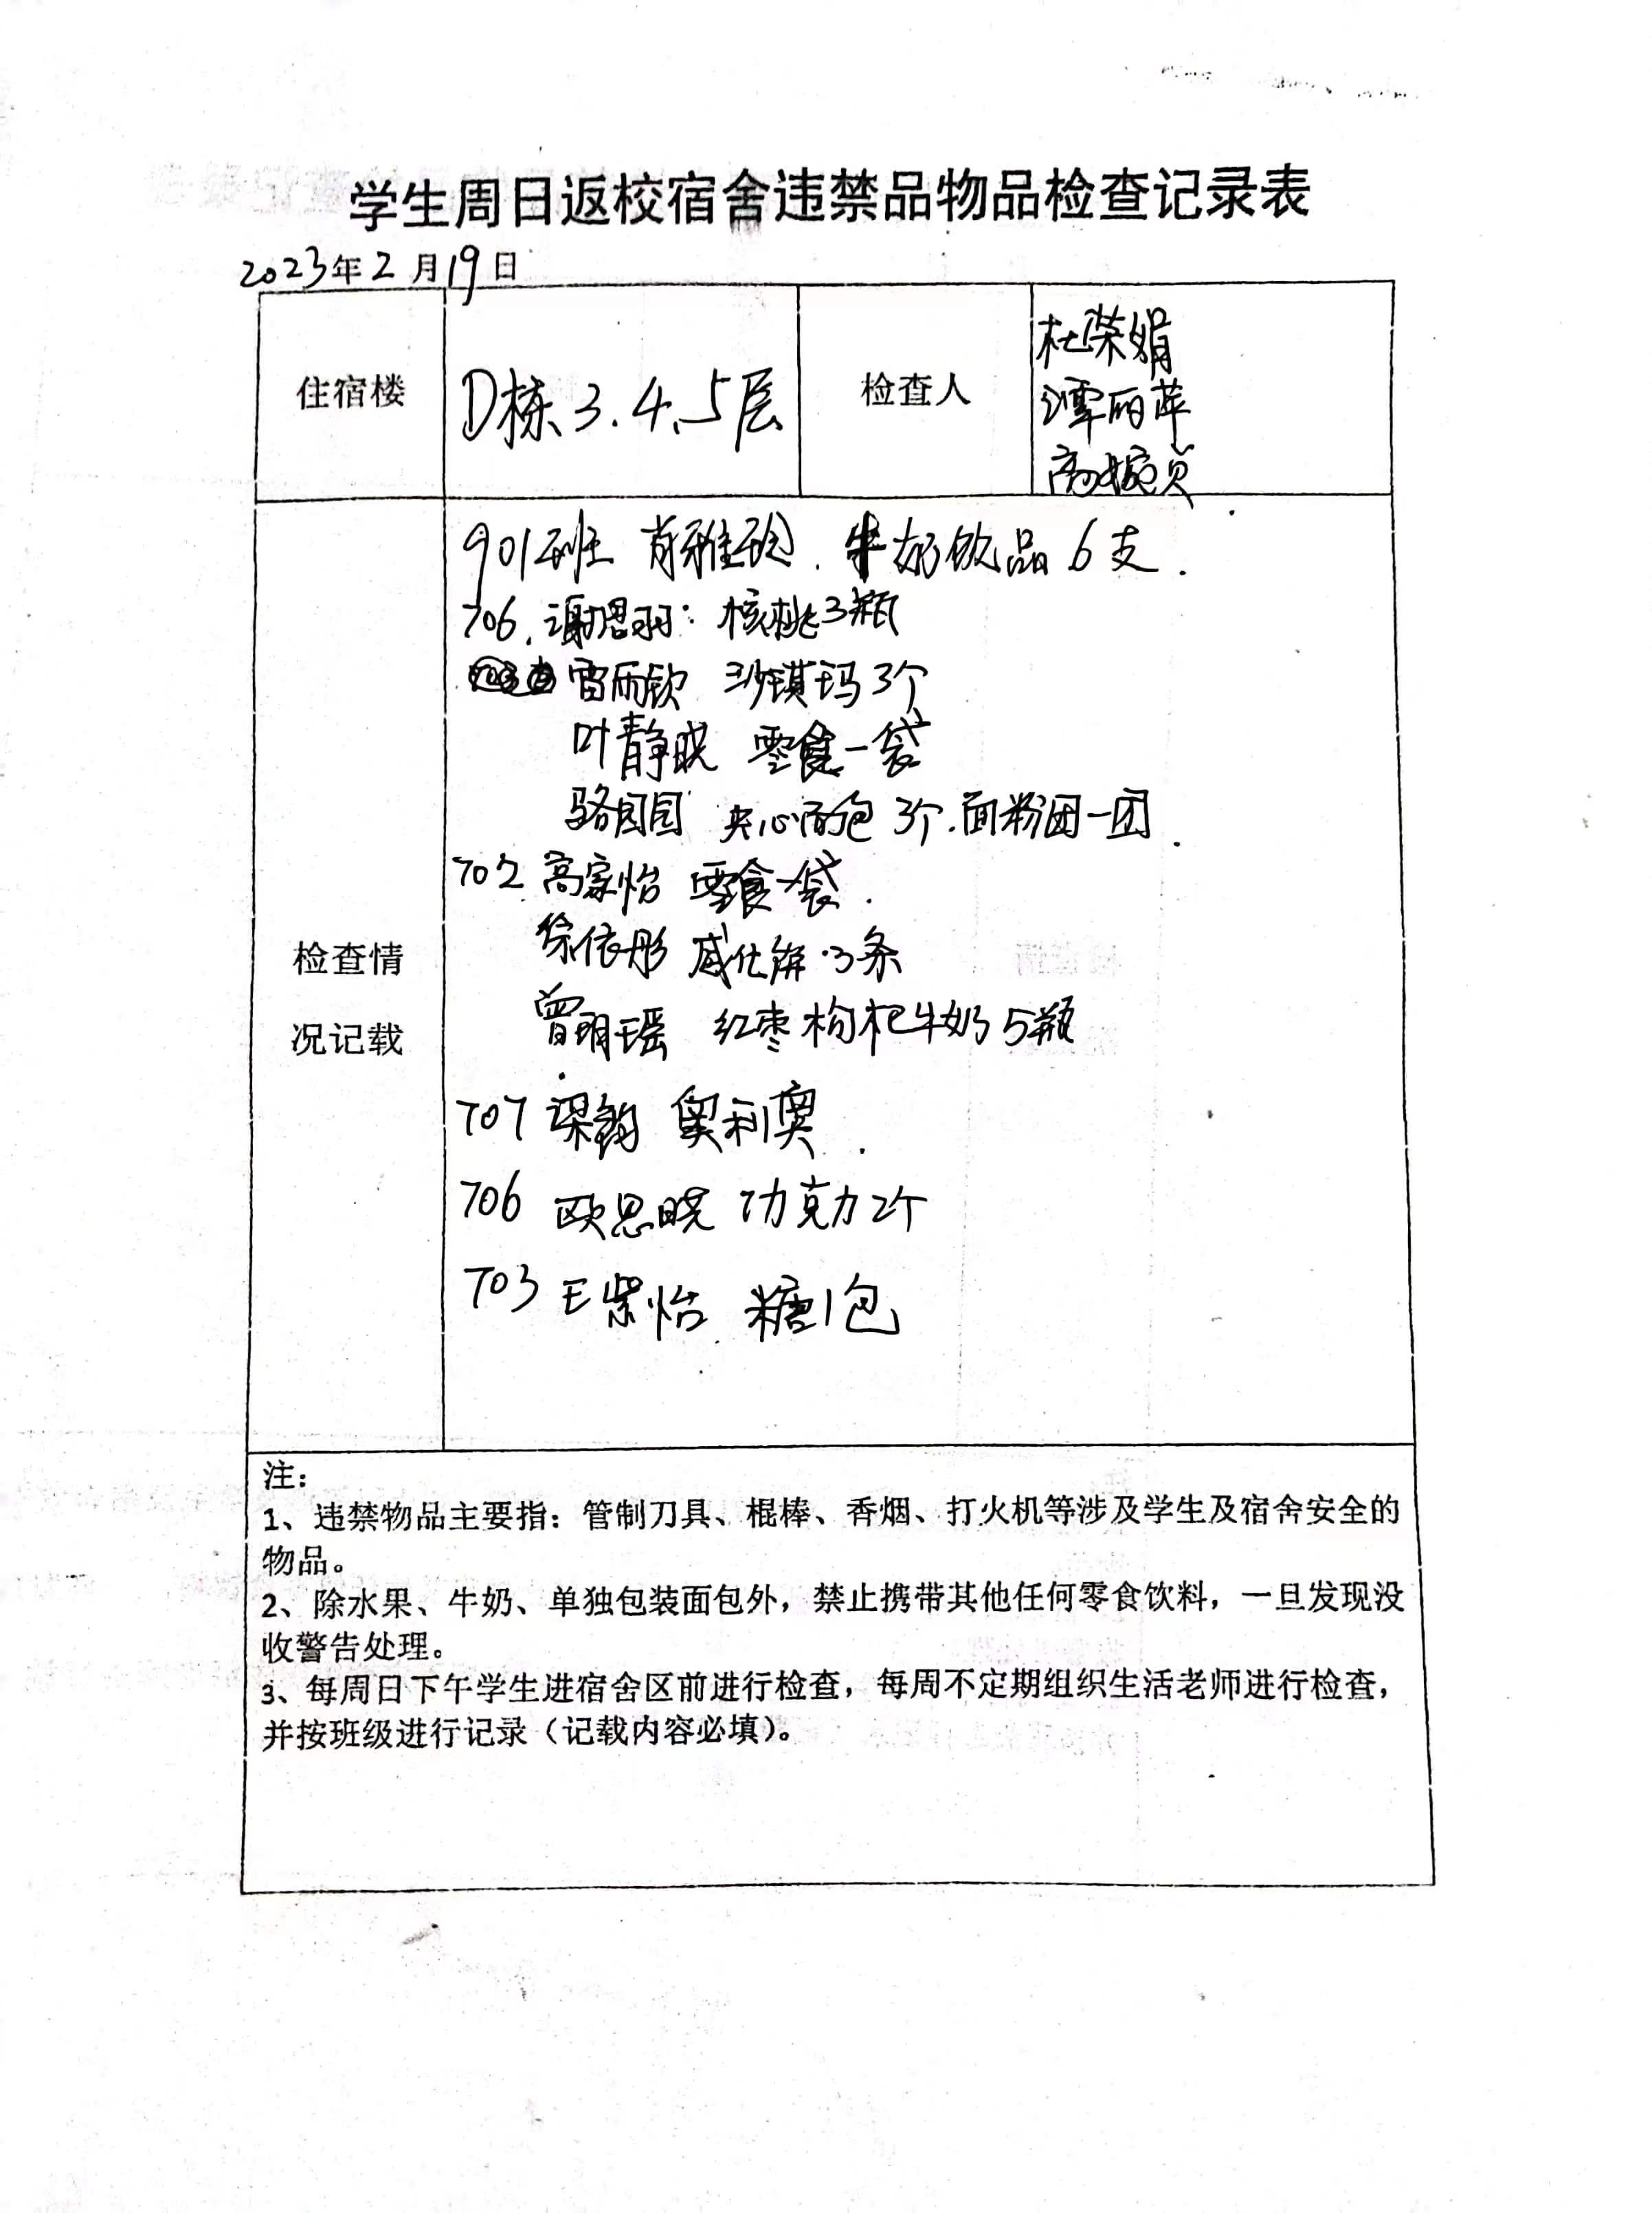 学生周日返校宿舍违禁品物品检查记录表
2023年2月19日
住宿楼
D栋3.4.5层
检查人
杜荣娟
谭丽萍
高婉贞
901班 肖雅玲. 牛奶饮品6支.
706. 谢思羽: 核桃3瓶
雷雨钦 沙琪玛3个
叶静 零食一袋
骆 夹心面包3个.面粉团一团.
702 高家怡 零食一袋.
徐依彤 威化饼3条
曾玥瑶 红枣枸杞牛奶5瓶
707 梁韵 奥利奥.
706 欧思晓 巧克力2个
703 王紫怡 糖1包
检查情
况记载
注：
1、违禁物品主要指：管制刀具、棍棒、香烟、打火机等涉及学生及宿舍安全的
物品。
2、除水果、牛奶、单独包装面包外，禁止携带其他任何零食饮料，一旦发现没
收警告处理。
3、每周日下午学生进宿舍区前进行检查，每周不定期组织生活老师进行检查，
并按班级进行记录（记载内容必填）。